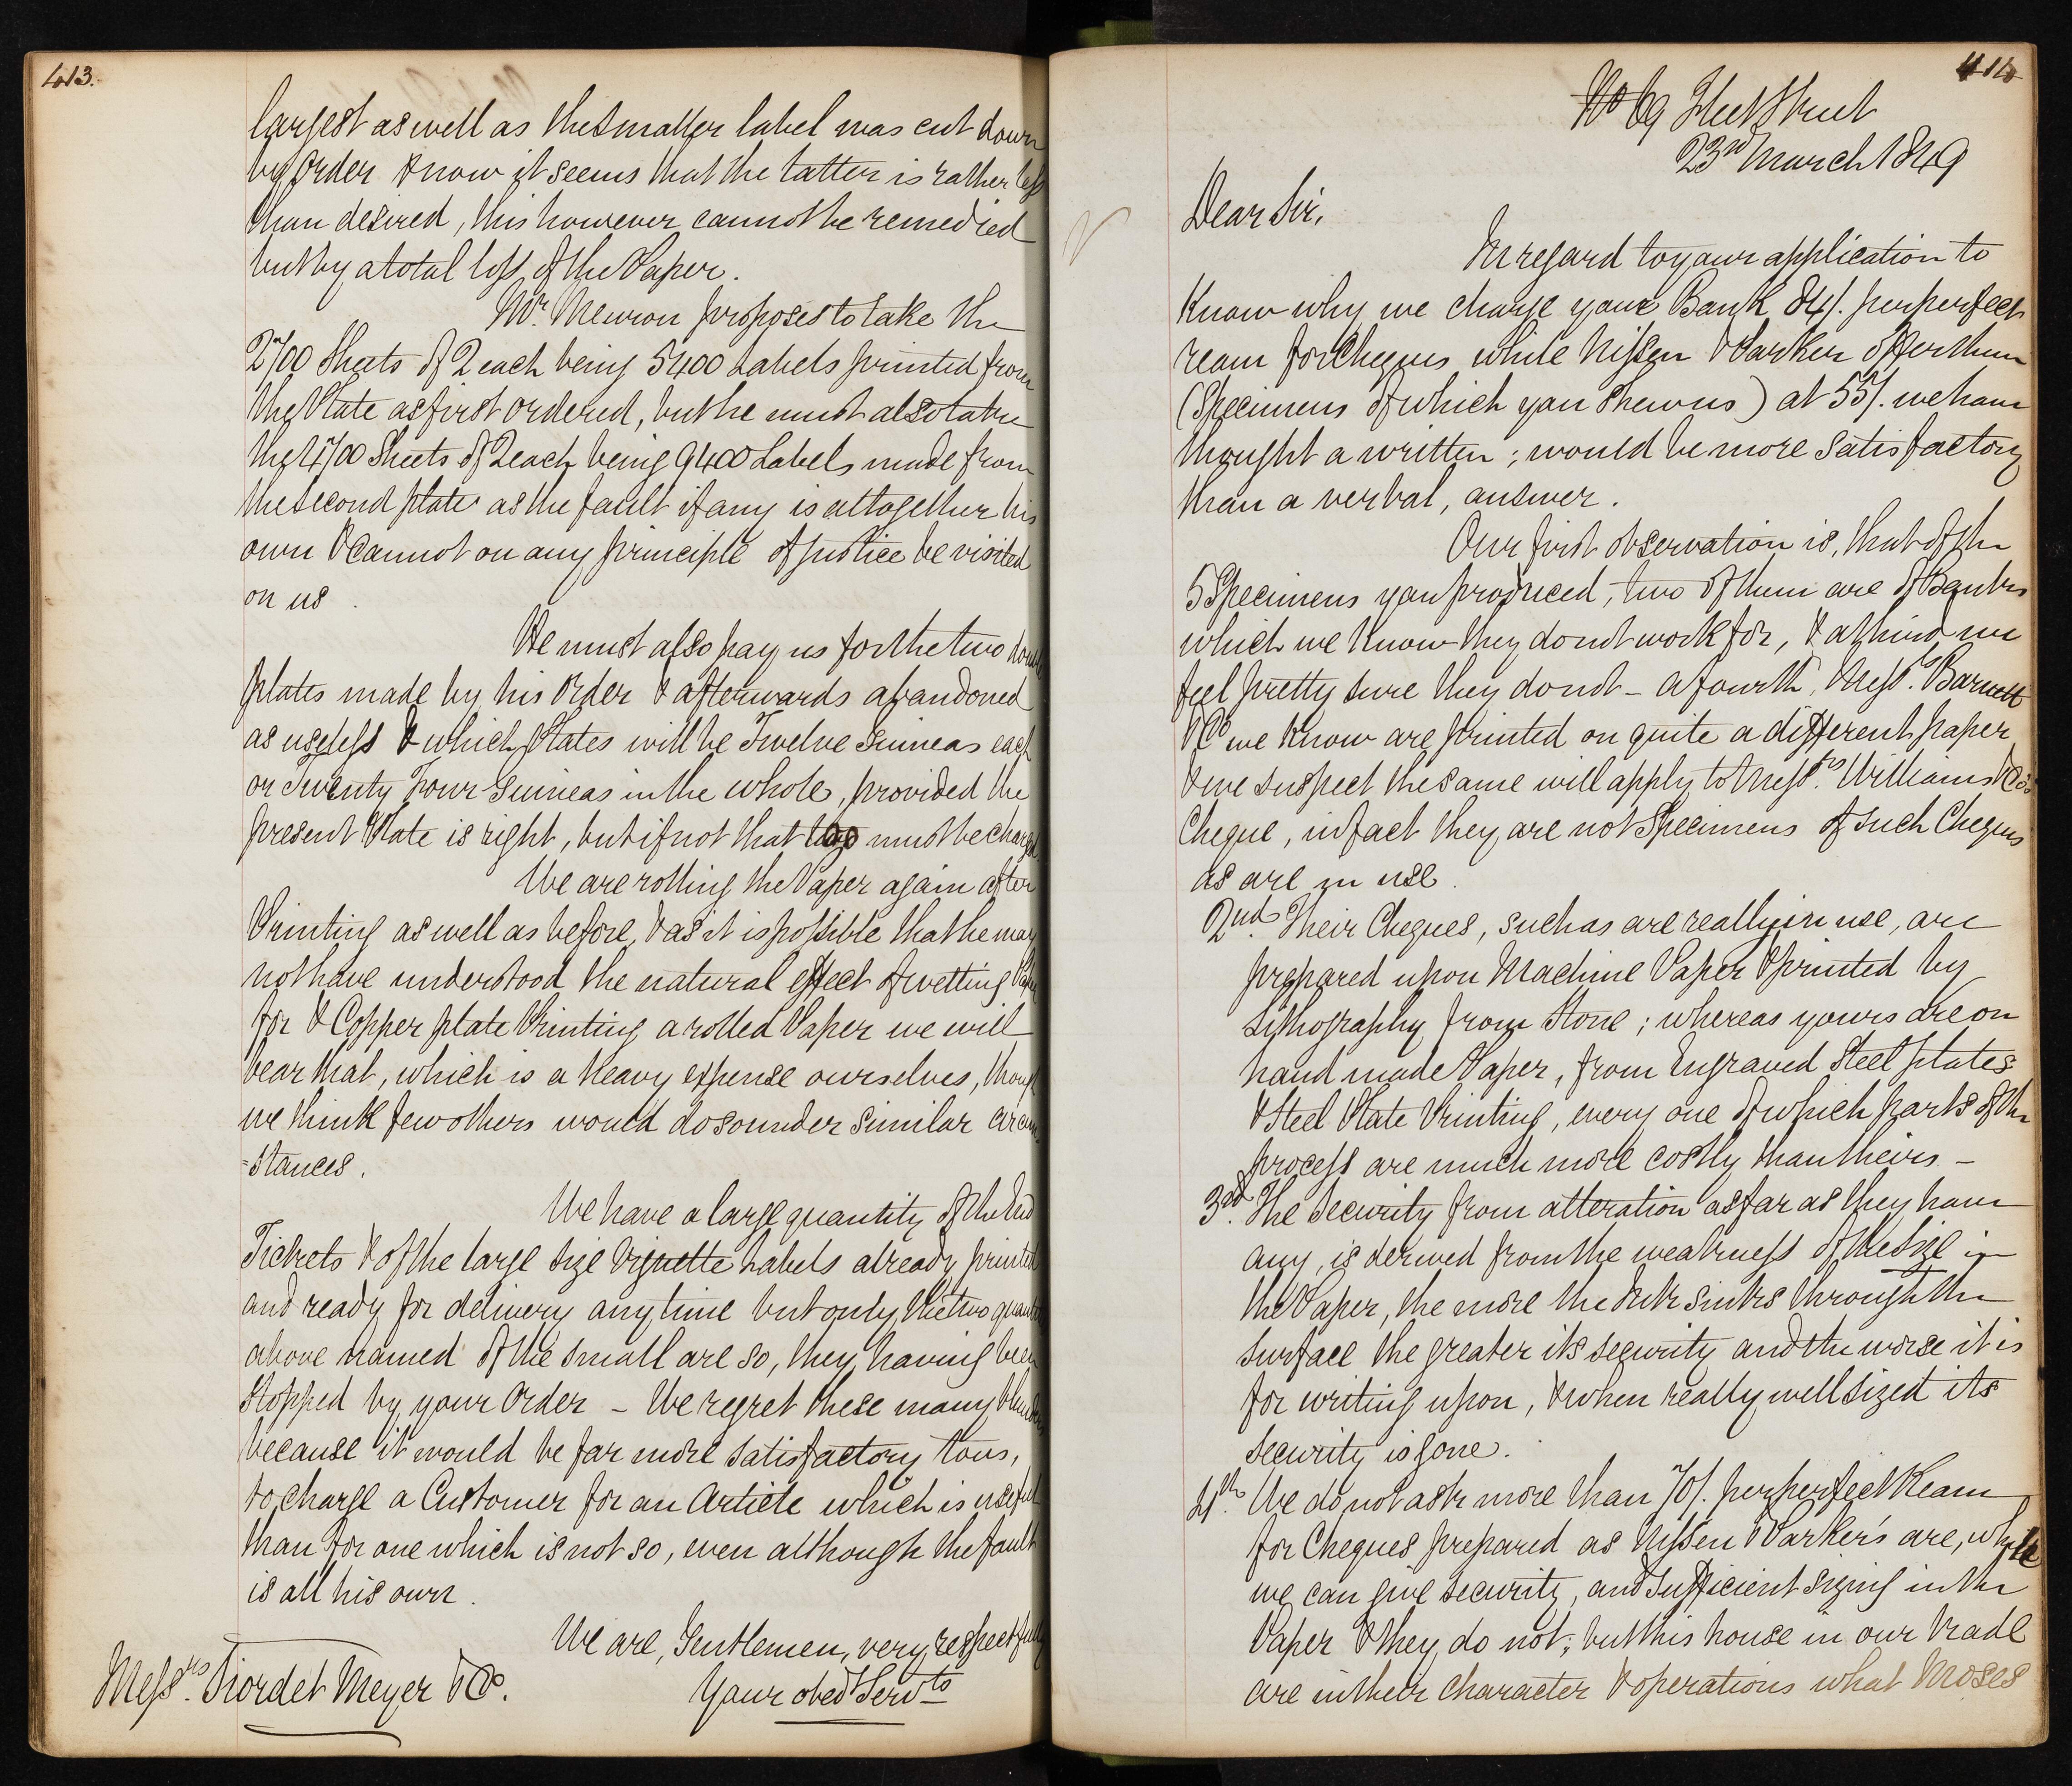 413.
largest as well as the smaller label was cut down
by Order & now it seems that the latter is rather less
than desired, this however cannot be remedied
but by a total loss of the Paper.
Mr. Newron proposes to take the
2700 Sheets of 2 each being 5400 Labels printed from
the Plate as first ordered, but he must also take
the 4700 Sheets of 2 each being 9400 Labels made from
the second plate as the fault if any is altogether his
own & cannot on any principle of justice be visited
on us.
He must also pay us for the two double
plates made by his Order & afterwards abandoned
as useless & which Plates will be Twelve Guineas each
or Twenty Four Guineas in the whole, provided the
present Plate is right, but if not that too must be charged
We are rolling the Paper again after
Printing as well as before, & as it is possible that he may
not have understood the natural effect of wetting Paper
for & Copper plate Printing a rolled Paper we will
bear that, which is a heavy expense ourselves, though
we think few others would do so under similar circum
=stances.
We have a large quantity of the End
Tickets & of the large size Vignette Labels already printed
and ready for delivery any time but only the two quantities
above named of the small are so, they having been
stopped by your Order – We regret these many blunders
because it would be far more satisfactory to us,
to charge a Customer for an Article which is useful
than for one which is not so, even although the fault
is all his own.
We are, Gentlemen, very respectfully
Your obed Servts
Messrs. Fiordet Meyer & Co.
414
No 69 Fleet Street
23rd March 1849
Dear Sir,
In regard to your application to
Know why we charge your Bank 84/. per perfect
ream for Cheques while Nissen & Parker offer them
(Specimens of which you shew us) at 55/. we have
thought a written; would be more satisfactory
than a verbal, answer.
Our first observation is, that of the
5 Specimens you produced, two of them are of Banks
which we Know they do not work for, & a third we
feel pretty sure they do not – a fourth, Messrs. Barnett
& Co we Know are printed on quite a different paper
& we suspect the same will apply to Messrs. Williams & Co's
Cheque, in fact they are not Specimens of such Cheques
as are in use.
2nd. Their Cheques, such as are really in use, are
prepared upon Machine Paper & printed by
Lithography from Stone; whereas yours are on
hand made Paper, from Engraved Steel plates
& Steel Plate Printing, every one of which parts of the
process are much more costly than theirs –
3rd. The security from alteration as far as they have
any, is derived from the weakness of the Size in
the Paper, the more the Ink sinks through the
surface the greater its security and the worse it is
for writing upon, & when really well sized its
security is gone.
4th. We do not ask more than 70/. per perfect Ream
for Cheques prepared as Nissen & Parker's are, while
we can give security, and sufficient sizing in the
Paper & they do not; but this house in our trade
are in their character & operations what Moses